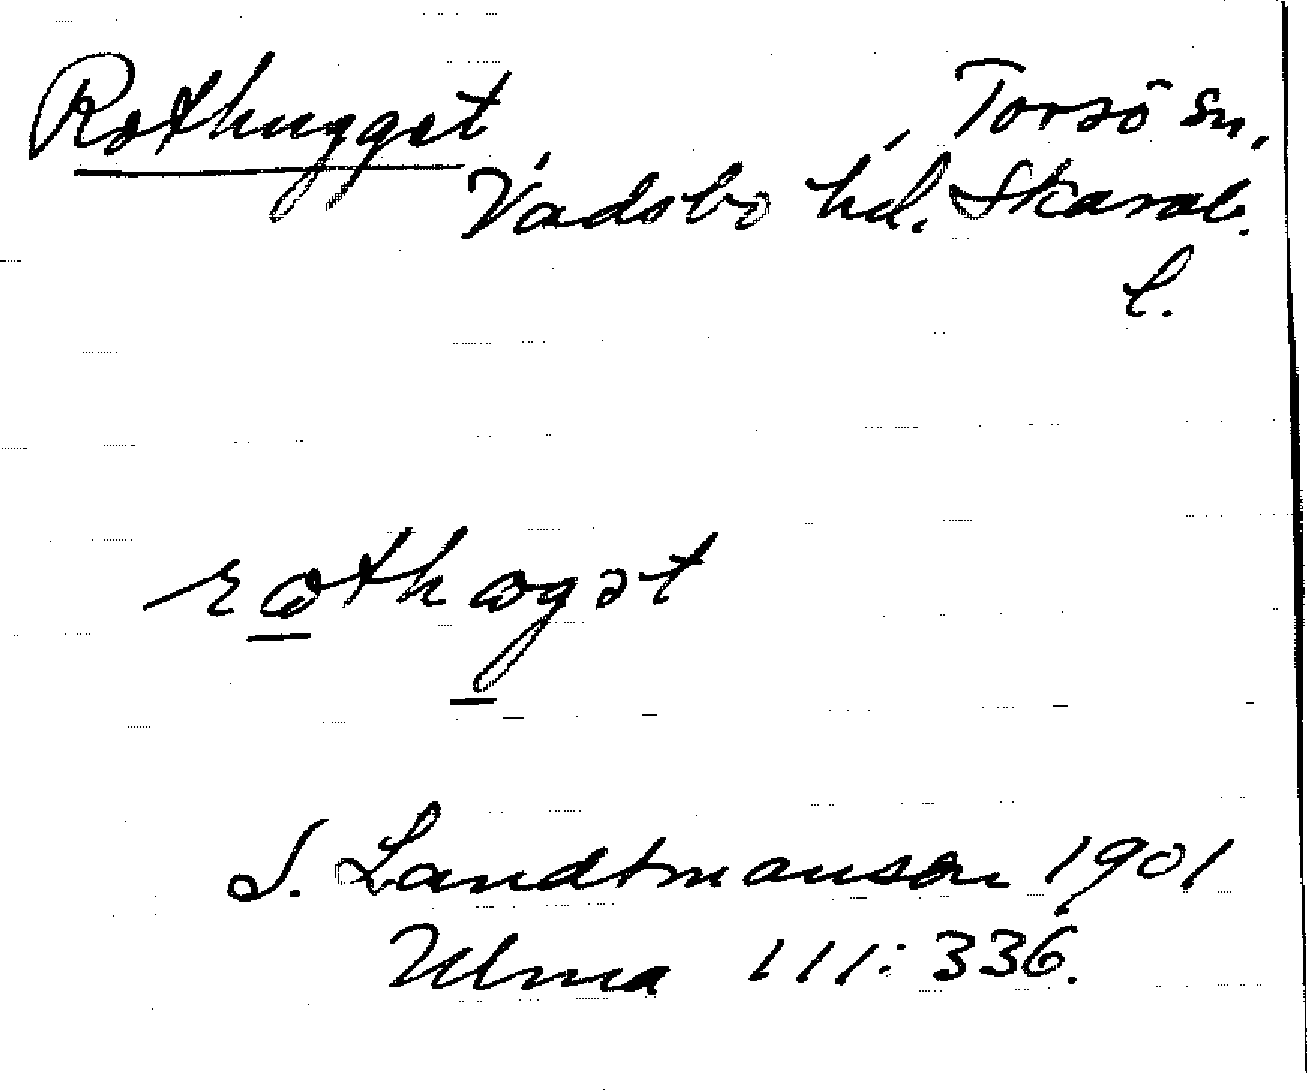 Rothugget, Torsö sn,
Vadsbo hd. Skarab.
l.
rɷthɷgət
S. Landtmanson 1901
Ulma 111:336.